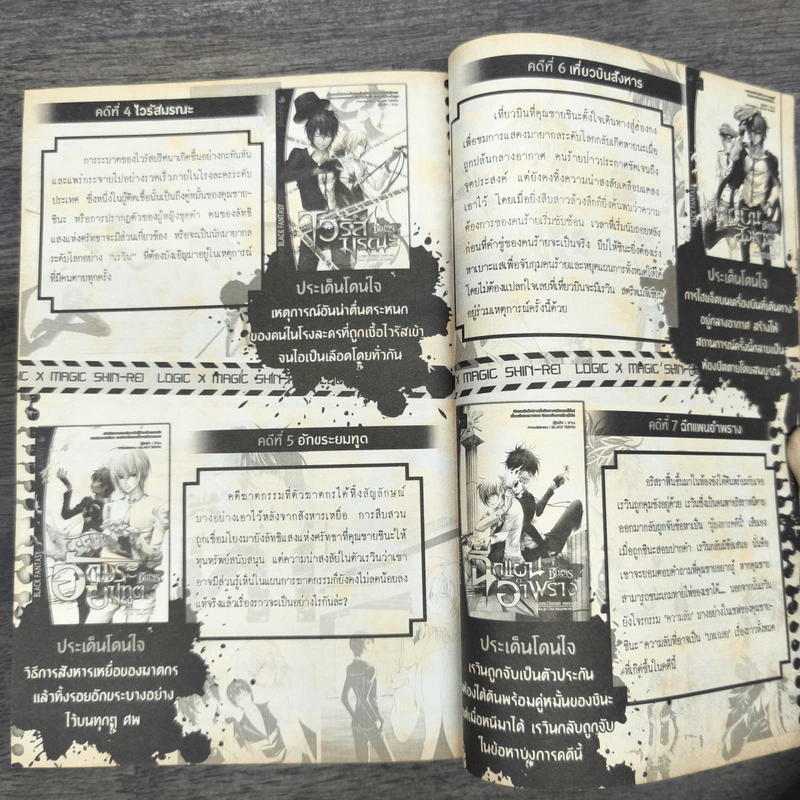 คดีที่ 4 ไวรัสมรณะ
การระบาดของไวรัสปริศนาเกิดขึ้นอย่างกะทันหัน
และแพร่กระจายไปอย่างรวดเร็วภายในโรงละครระดับ
ประเทศ ซึ่งหนึ่งในผู้ติดเชื้อนั้นเป็นถึงคู่หมั้นของคุณชาย-
ชินะ หรือการปรากฏตัวของผู้หญิงชุดดำ คนของลัทธิ
แสงแห่งศรัทธาจะมีส่วนเกี่ยวข้อง หรือจะเป็นนักมายากล
ระดับโลกอย่าง "เรวิน" ที่ต้องบังเอิญมาอยู่ในเหตุการณ์
ที่มีคนตายทุกครั้ง
BLACK FANTASY
ไวรัส
มรณะ
ประเด็นโดนใจ
เหตุการณ์อันน่าตื่นตระหนก
ของคนในโรงละครที่ถูกเชื้อไวรัสเข้า
จนไอเป็นเลือดโดยทั่วกัน
LOGIC X MAGIC SHIN-REI
คดีที่ 5 อักขระยมทูต
คดีฆาตกรรมที่ตัวฆาตกรได้ทิ้งสัญลักษณ์
บางอย่างเอาไว้หลังจากสังหารเหยื่อ การสืบสวน
ถูกเชื่อมโยงมายังลัทธิแสงแห่งศรัทธาที่คุณชายชินะให้
ทุนทรัพย์สนับสนุน แต่ความน่าสงสัยในตัวเรวินว่าเขา
อาจมีส่วนรู้เห็นในแผนการฆาตกรรมก็ยังคงไม่ลดน้อยลง
แท้จริงแล้วเรื่องราวจะเป็นอย่างไรกันล่ะ?
BLACK FANTASY
อักขระ
ยมทูต
ประเด็นโดนใจ
วิธีการสังหารเหยื่อของฆาตกร
แล้วทิ้งรอยอักขระบางอย่าง
ไว้บนทุกๆ ศพ
คดีที่ 6 เที่ยวบินสังหาร
เที่ยวบินที่คุณชายชินะตั้งใจเดินทางสู่ฮ่องกง
เพื่อชมการแสดงมายากลระดับโลกกลับเกิดหายนะเมื่อ
ถูกปล้นกลางอากาศ คนร้ายป่าวประกาศชัดเจนถึง
จุดประสงค์ แต่ยังคงทิ้งความน่าสงสัยเคลือบแคลง
เอาไว้ โดยเมื่อยิ่งสืบสาวล้วงลึกก็ยิ่งค้นพบว่าความ
ต้องการของคนร้ายเริ่มซับซ้อน เวลาที่เริ่มนับถอยหลัง
ก่อนที่คำขู่ของคนร้ายจะเป็นจริง บีบให้ชินะยิ่งต้องเร่ง
หาเบาะแสเพื่อจับกุมคนร้ายและหยุดแผนการทั้งหมดให้ได้
โดยไม่ต้องแปลกใจเลยที่เที่ยวบินจะมีเรวิน
อยู่ร่วมเหตุการณ์ครั้งนี้ด้วย
ประเด็นโดนใจ
การไฮแจ็คบนเครื่องบินที่เดินทาง
อยู่กลางอากาศ สร้างให้
สถานการณ์ครั้งนี้กลายเป็น
ห้องปิดตายโดยสมบูรณ์
LOGIC X MAGIC SHIN-REI
คดีที่ 7 ฉีกแผนอำพราง
ฉีกแผน
อำพราง
อริสาฟื้นขึ้นมาในห้องขังใต้ดินพร้อมกับเจอ
เรวินถูกคุมขังอยู่ด้วย
ออกมากลับถูกจับข้อหาเป็น
เมื่อถูกชินะสอบปากคำ เรวินกลับมีข้อเสนอ นั่นคือ
เขาจะยอมตอบคำถามที่คุณชายอยากรู้ หากคุณชาย
สามารถชนะเกมทายไพ่ของเขาได้... นอกจากนั้นเรวิน
ยังโจรกรรม "ความลับ" บางอย่างในเซฟของคุณชาย-
ชินะ
ที่เกิดขึ้นในคดีนี้
ประเด็นโดนใจ
เรวินถูกจับเป็นตัวประกัน
ห้องใต้ดินพร้อมคู่หมั้นของชินะ
เมื่อหนีมาได้ เรวินกลับถูกจับ
ในข้อหาบงการคดีนี้